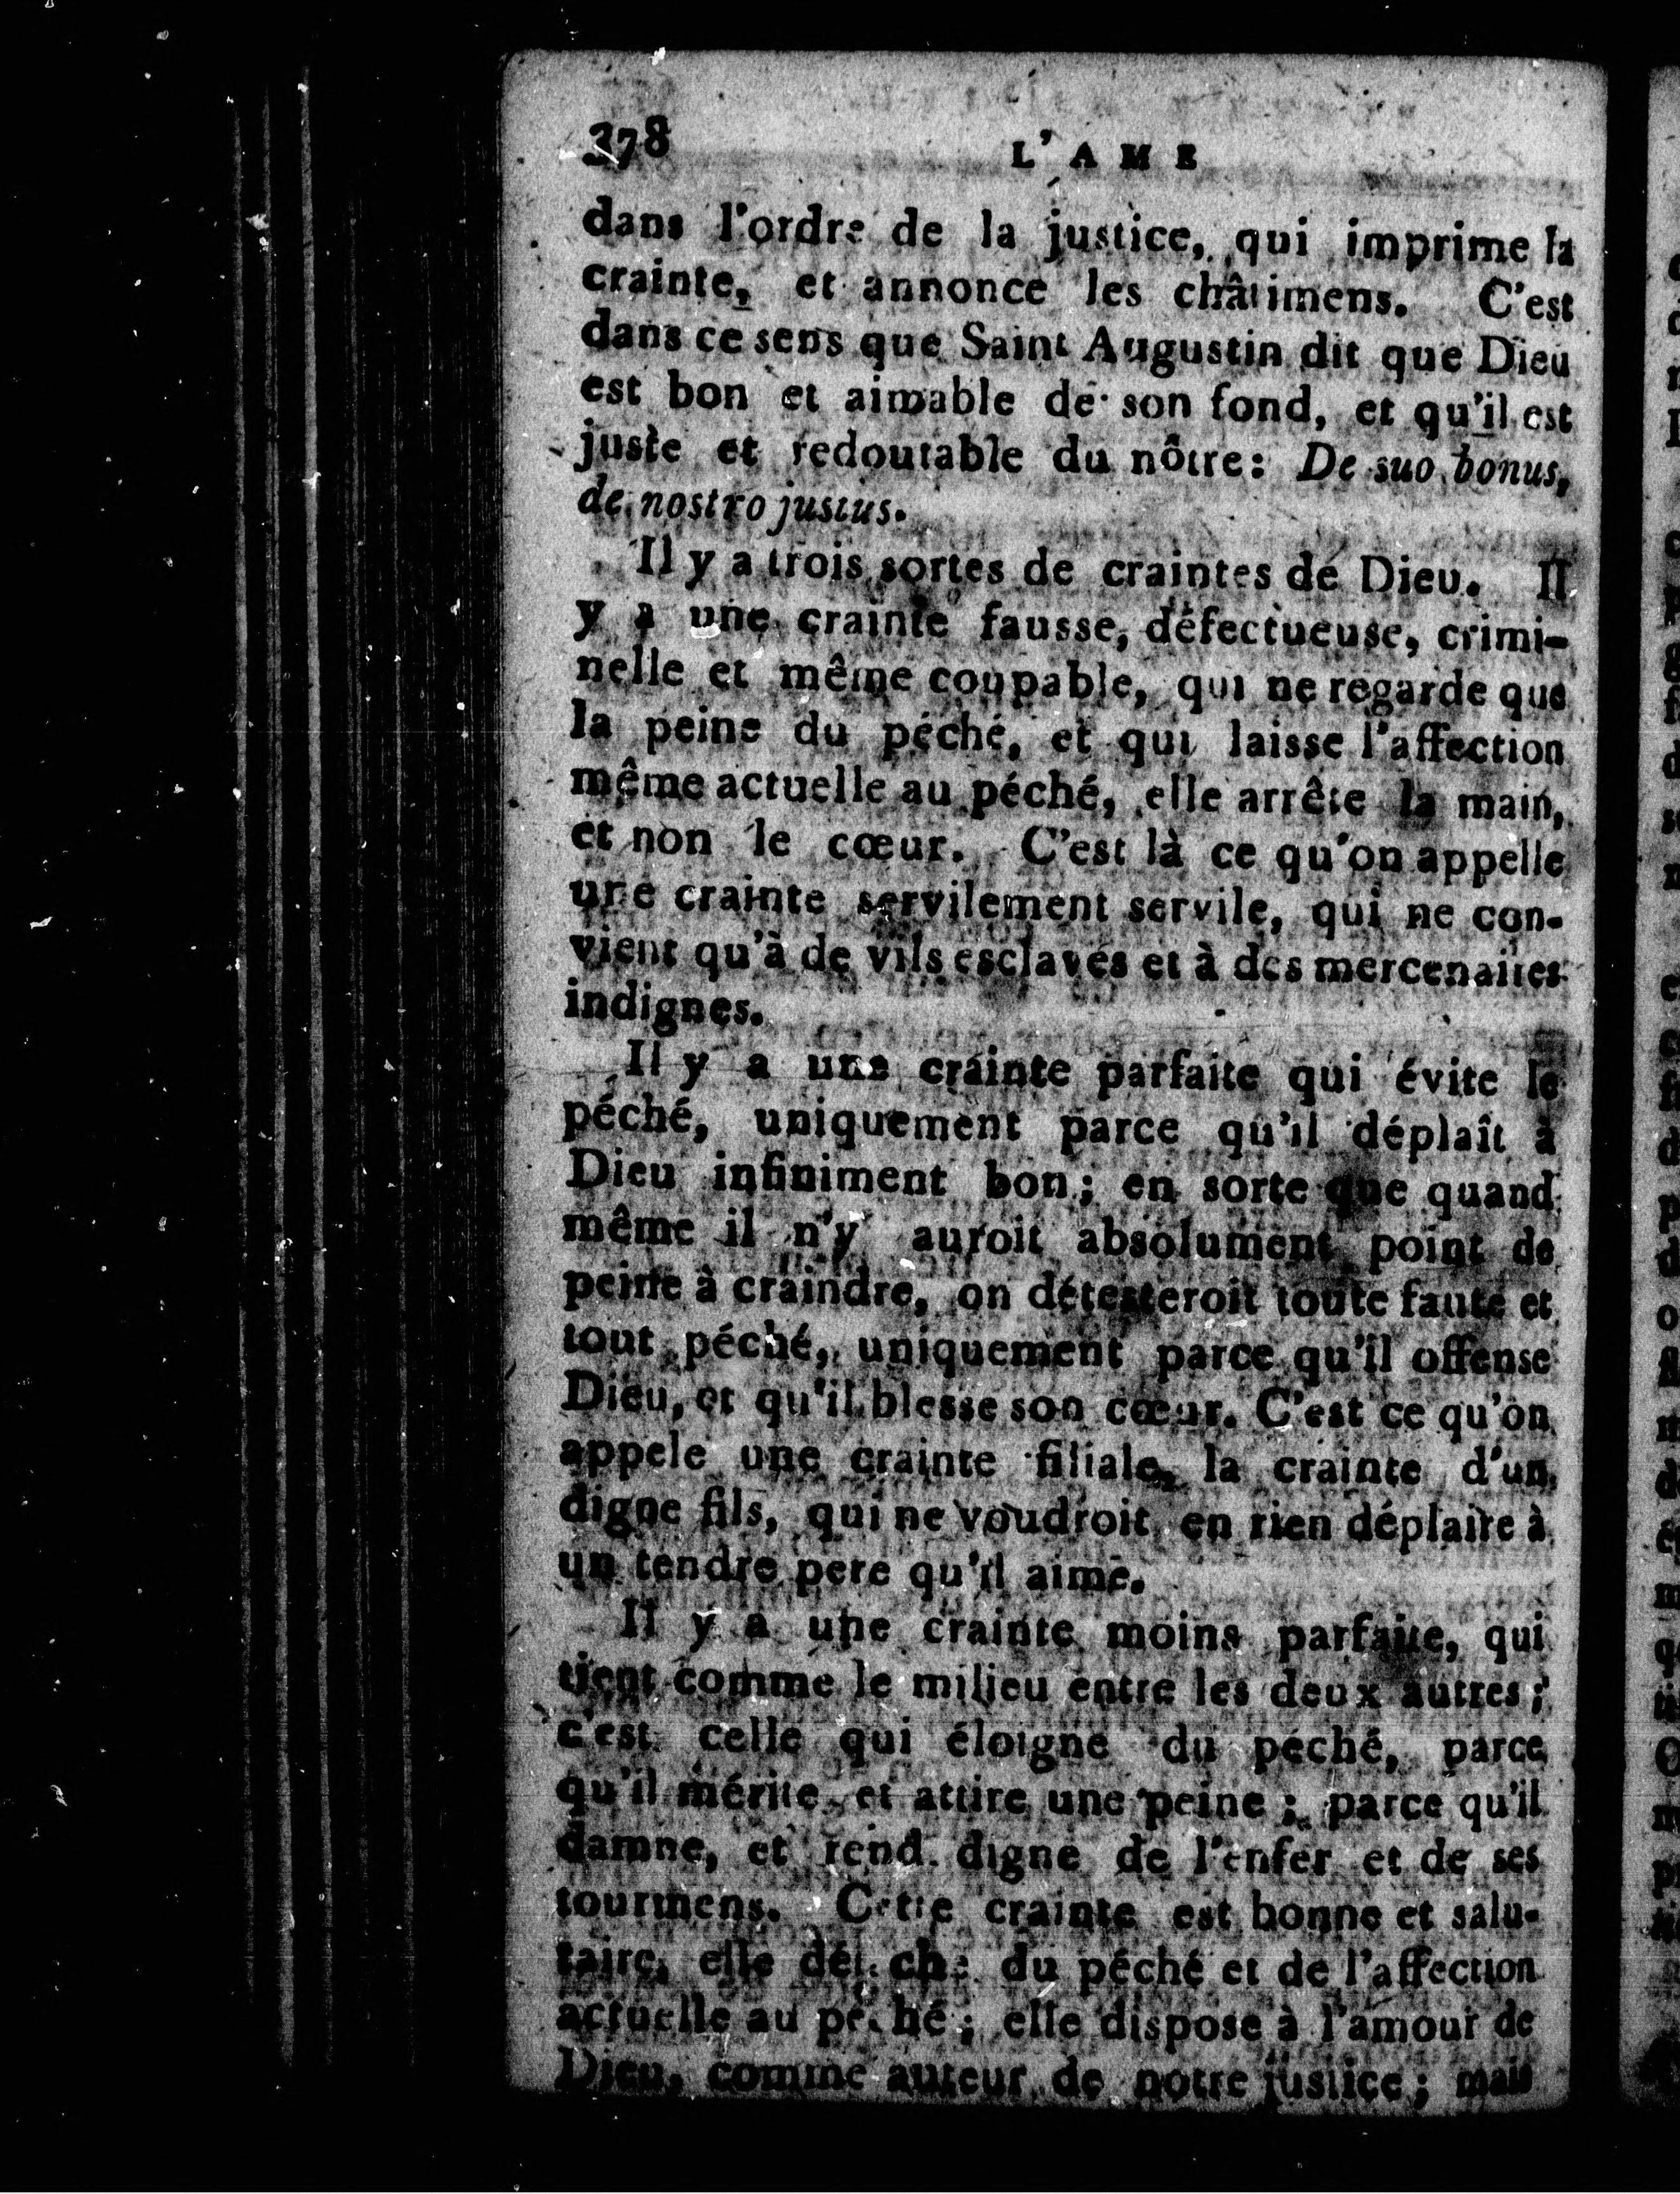 378
L'AME
dans l'ordre de la justice, qui imprime la
crainte, et annonce les châtimens. C'est
dans ce sens que Saint Augustin dit que Dieu
est bon et aimable de son fond, et qu'il est
juste et redoutable du nôtre: De suo bonus,
de nostro justus.
Il y a trois sortes de craintes de Dieu. Il
y a une crainte fausse, défectueuse, crimi-
nelle et même coupable, qui ne regarde que
la peine du péché, et qui laisse l'affection
même actuelle au péché, elle arrête la main,
et non le cœur. C'est là ce qu'on appelle
une crainte servilement servile, qui ne con-
vient qu'à de vils esclaves et à des mercenaires
indignes.
Il y a une crainte parfaite qui évite le
péché, uniquement parce qu'il déplaît à
Dieu infiniment bon; en sorte que quand
même il n'y auroit absolument point de
peine à craindre, on détesteroit toute faute et
tout péché, uniquement parce qu'il offense
Dieu, et qu'il blesse son cœur. C'est ce qu'on
appele une crainte filiale, la crainte d'un
digne fils, qui ne voudroit en rien déplaire à
un tendre pere qu'il aime.
Il y a une crainte moins parfaite, qui
tient comme le milieu entre les deux autres;
c'est celle qui éloigne du péché, parce
qu'il mérite et attire une peine; parce qu'il
damne, et rend digne de l'enfer et de ses
tourmens. Cette crainte est bonne et salu-
taire, elle détache du péché et de l'affection
actuelle au péché; elle dispose à l'amour de
Dieu, comme auteur de notre justice; mais